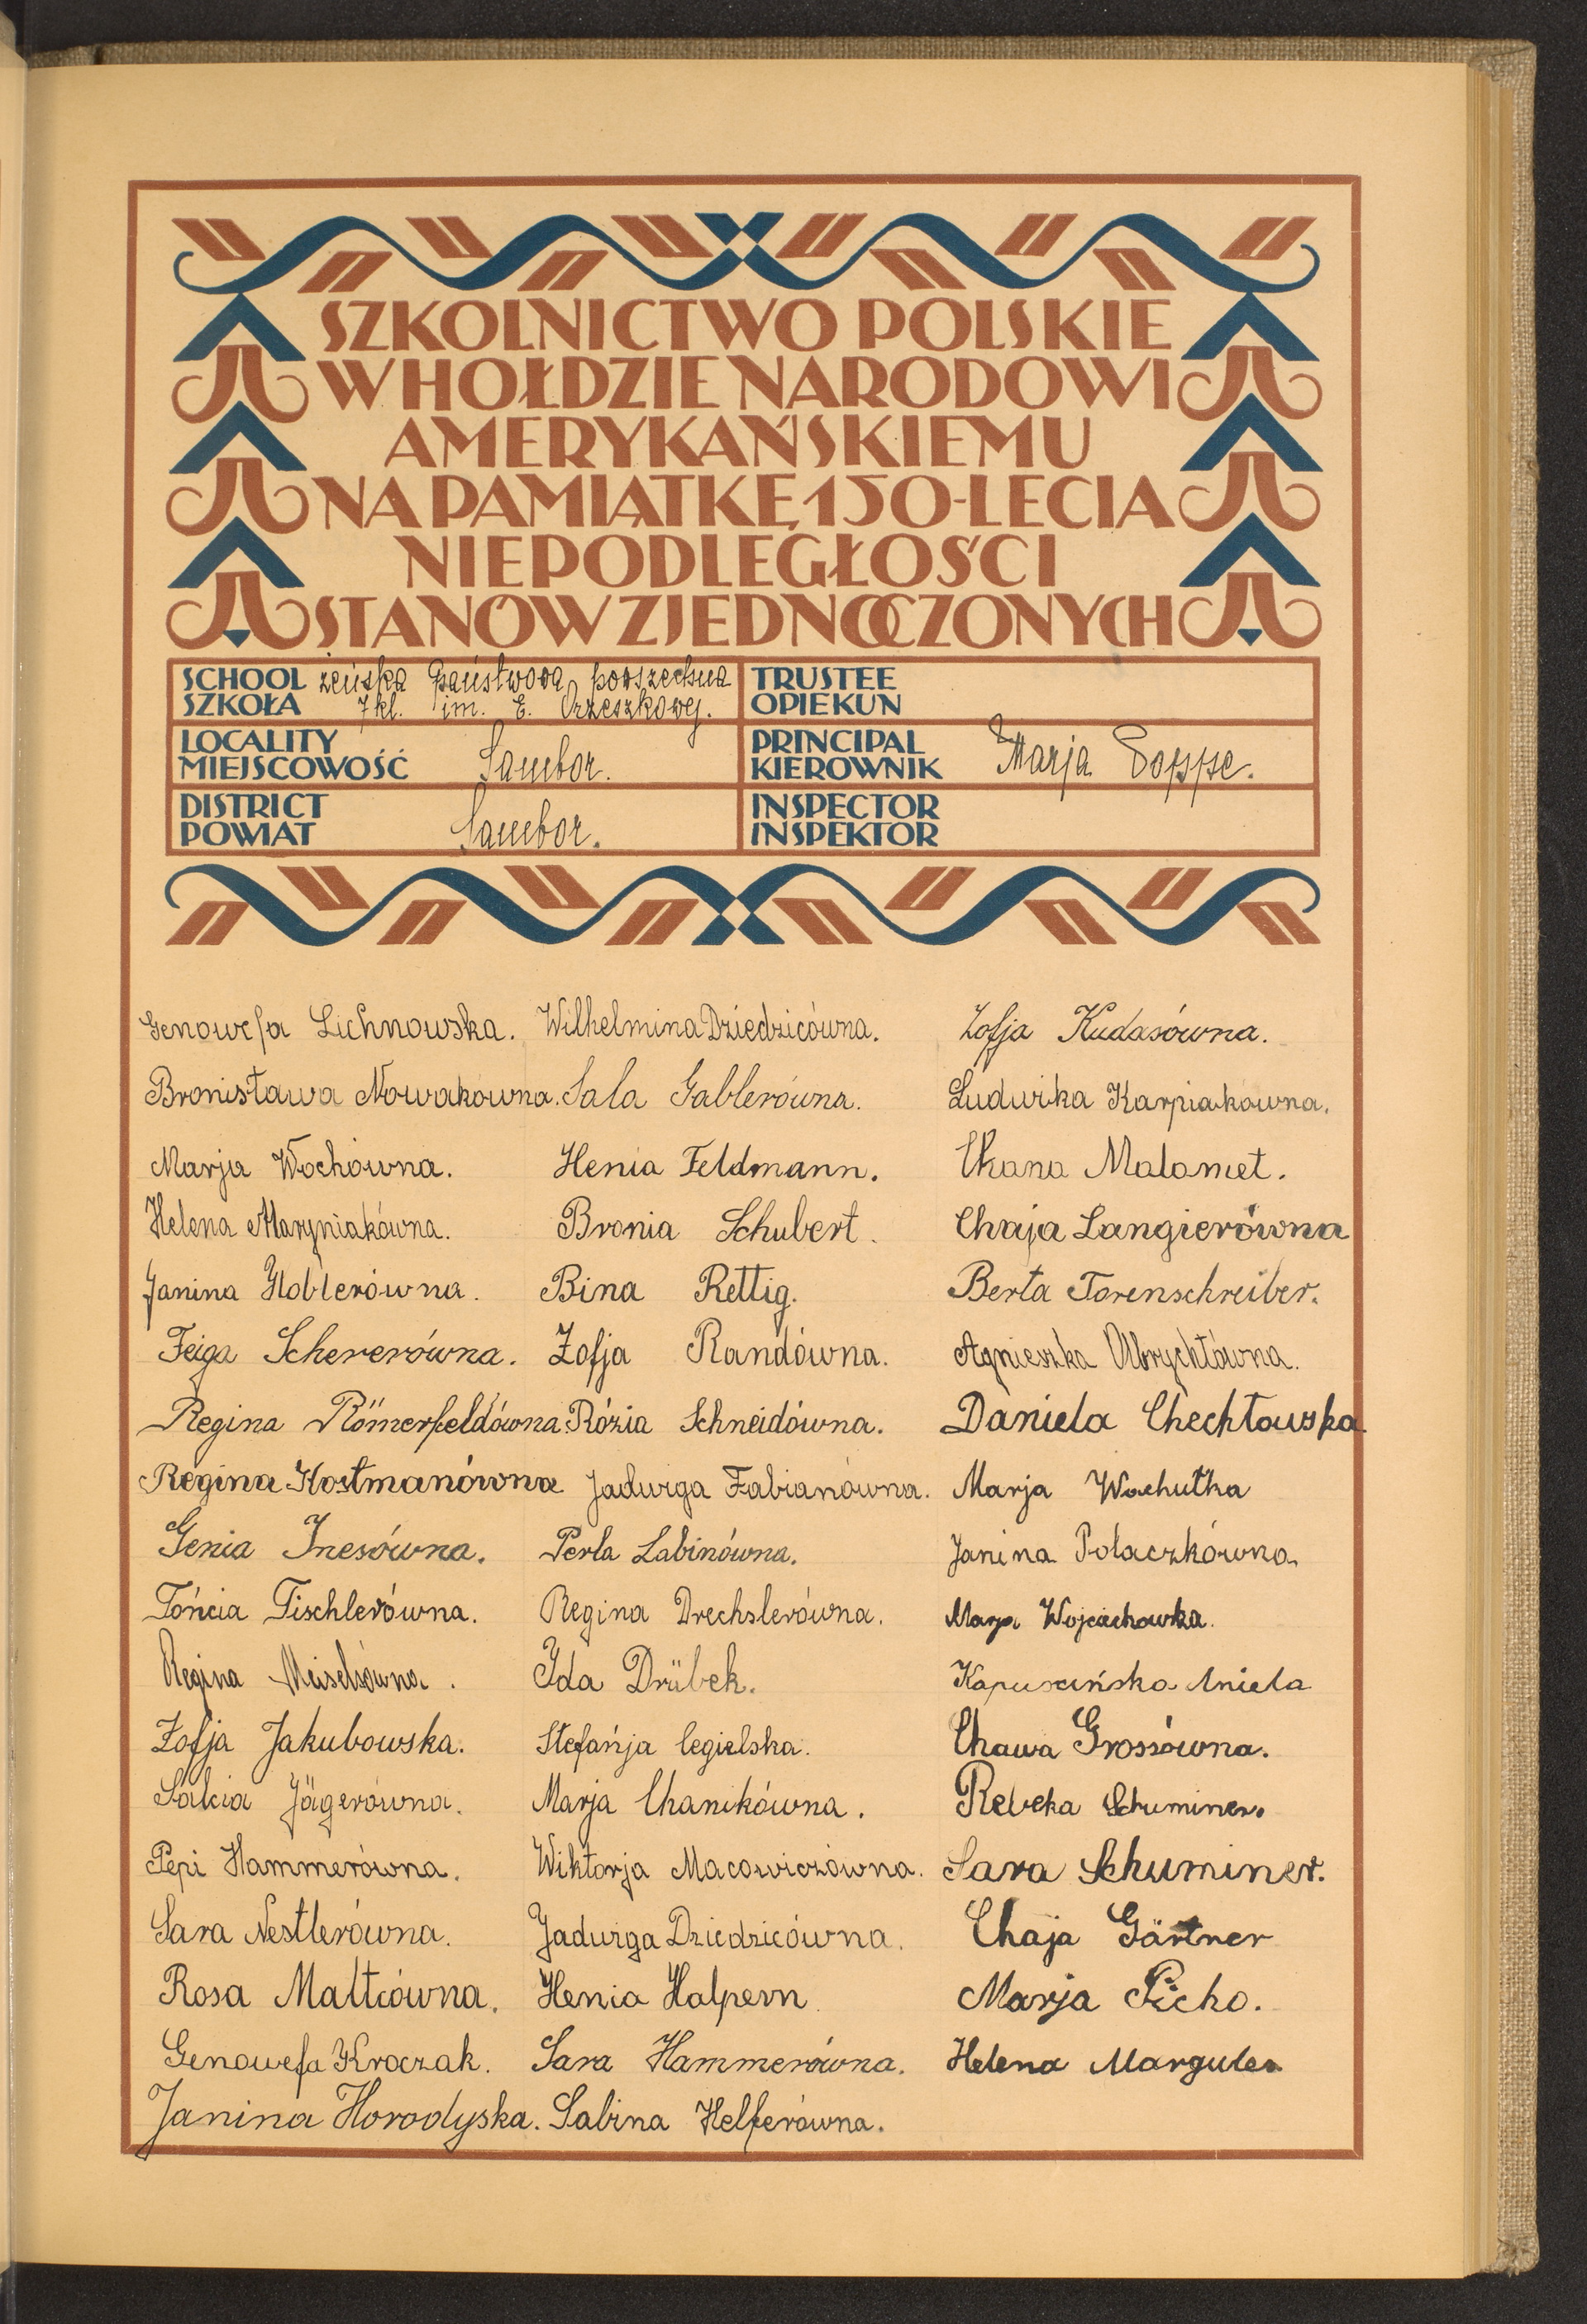 SZKOLNICTWO POLSKIE
W HOŁDZIE NARODOWI
AMERYKAŃSKIEMU
NA PAMIĄTKĘ 150-LECIA
NIEPODLEGŁOŚCI
STANÓW ZJEDNOCZONYCH
SCHOOL żeńska państwowa powszechna
SZKOŁA 7 kl. im. E. Orzeszkowej.
TRUSTEE
OPIEKUN
LOCALITY
MIEJSCOWOŚĆ Sambor.
PRINCIPAL
KIEROWNIK Marja Soppe.
DISTRICT
POWIAT Sambor.
INSPECTOR
INSPEKTOR
Genowefa Lichnowska.
Bronisława Nowakówna.
Marja Wochówna.
Helena Maryniakówna.
Janina Hoblerówna.
Feiga Schererówna.
Regina Römerfeldówna.
Regina Kostmanówna
Genia Inesówna.
Tońcia Tischlerówna.
Regina Meiselsówna.
Zofja Jakubowska.
Salcia Jägerówna.
Pepi Hammerówna.
Sara Nestlerówna.
Rosa Maltzówna.
Genowefa Kroczak.
Janina Horodyska.
Wilhelmina Dziedzicówna.
Sala Gablerówna.
Henia Feldmann.
Bronia Schubert.
Bina Rettig.
Zofja Randówna.
Rózia Schneidówna.
Jadwiga Fabianówna.
Perla Labinówna.
Regina Drechslerówna.
Ida Drübek.
Stefańja Cegielska.
Marja Chanikówna.
Wiktorja Macowiczówna.
Jadwiga Dziedzicówna.
Henia Halpern.
Sara Hammerówna.
Sabina Helferówna.
Zofja Kudasówna.
Ludwika Karpiakówna.
Chana Malamet.
Chaja Langierówna
Berta Torenschreiber.
Agnieszka Olbrychtówna.
Daniela Chechłowska
Marja Wachułka
Janina Polaczkówna.
Marja Wojciechowska.
Kapuscińska Aniela
Chawa Grossówna.
Rebeka Schuminer.
Sara Schuminer.
Chaja Gärtner
Marja Picho.
Helena Margules